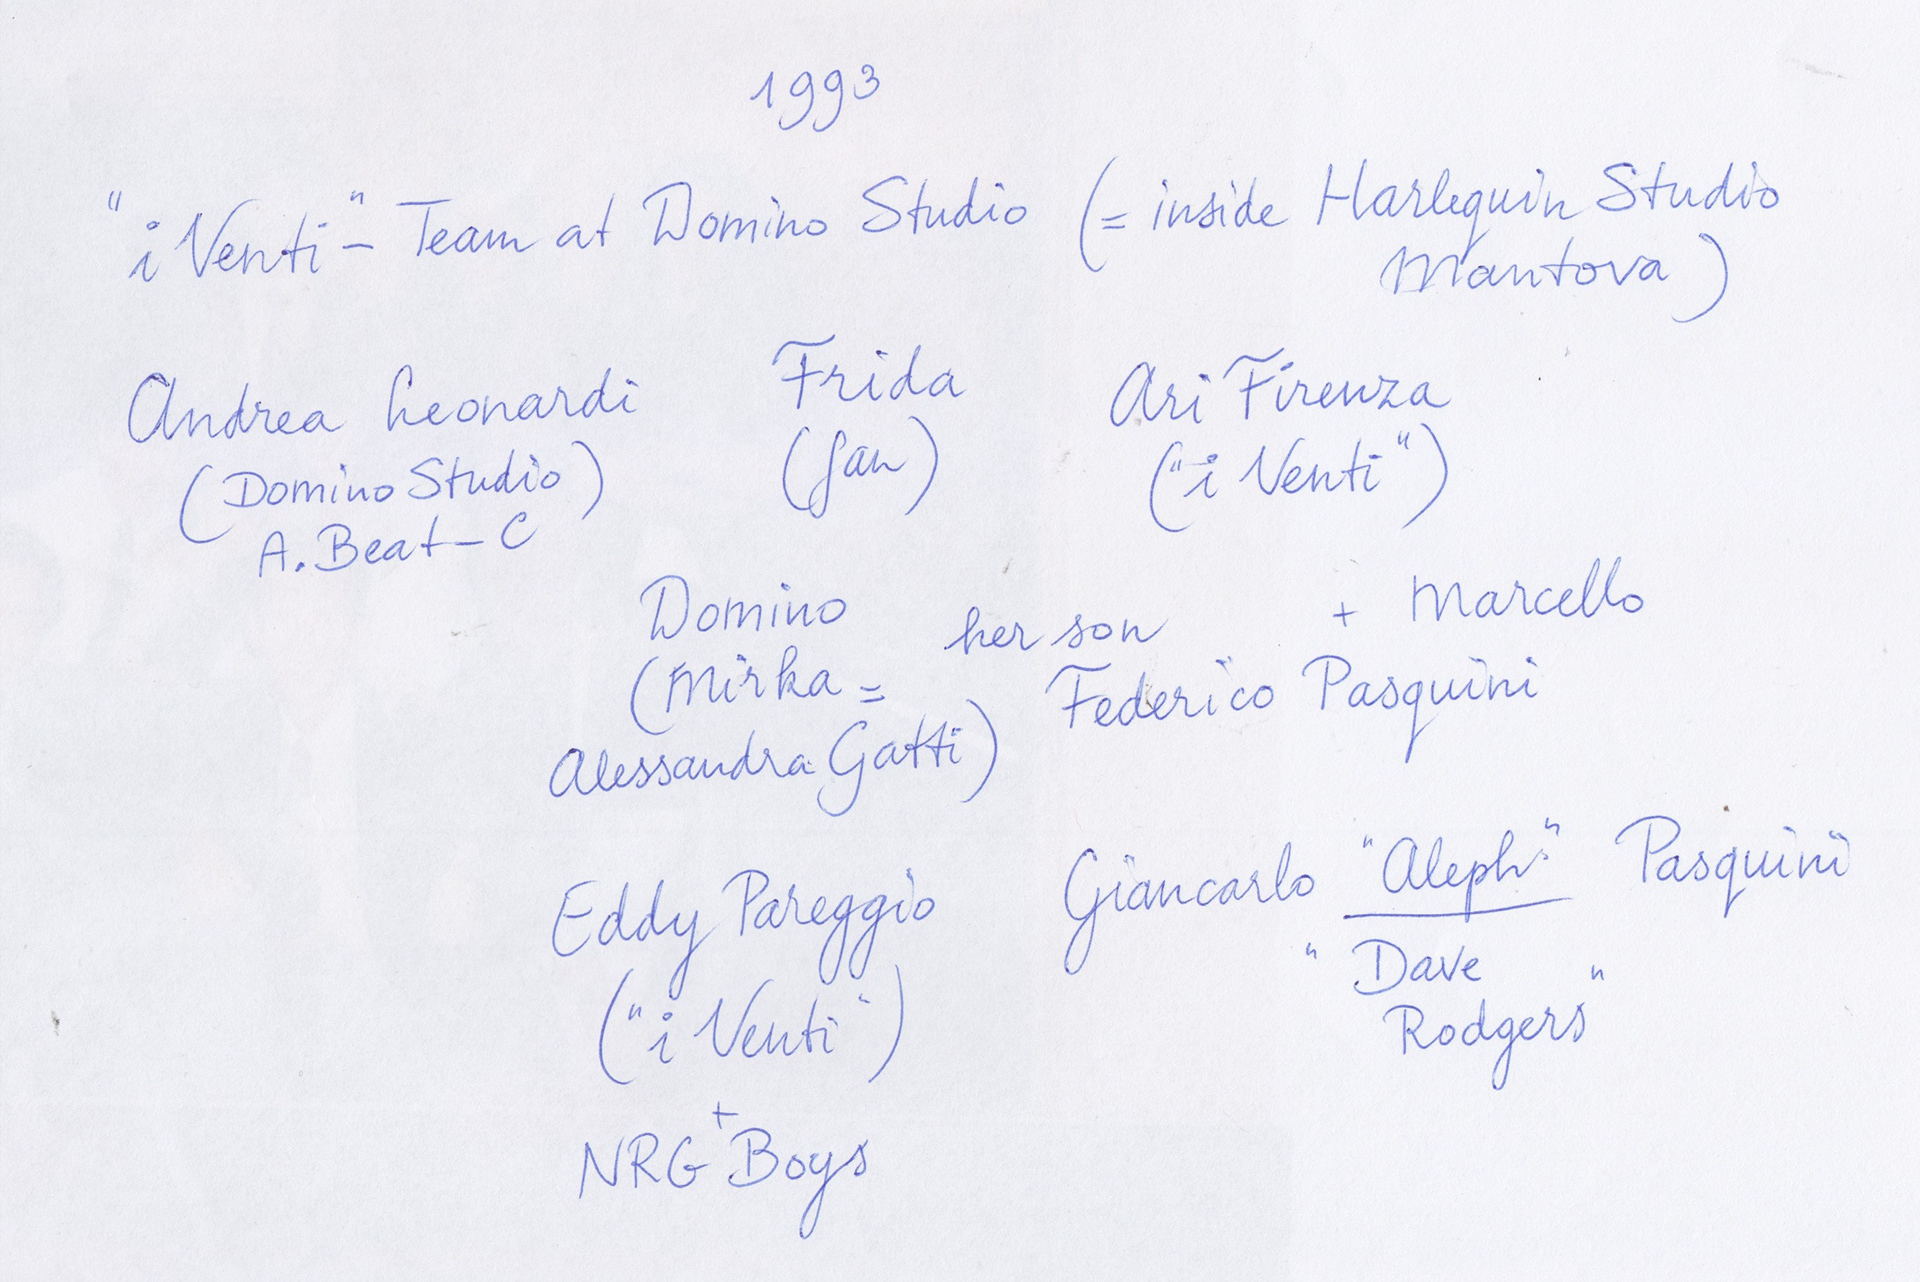 1993
"i Venti"- Team at Domino Studio (= inside Harlequin Studio
Mantova)
Andrea Leonardi Frida Ari Firenza
(Domino Studio) (fan) ("i Venti")
A. Beat-C
Domino her son + Marcello
(Mirka = Federico Pasquini
Alessandra Gatti)
Eddy Pareggio Giancarlo "Aleph" Pasquini
("i Venti") "Dave
Rodgers"
+
NRG Boys